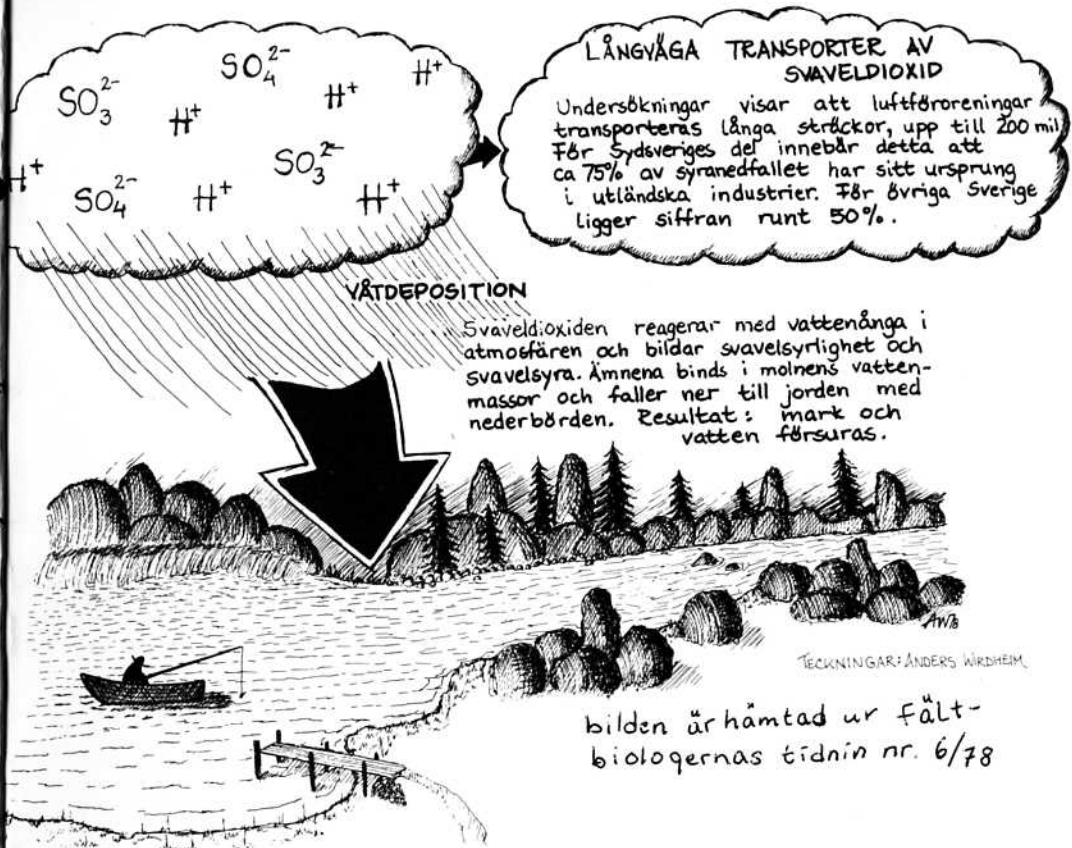 SO₃²⁻ SO₄²⁻ H⁺
H⁺ H⁺
H⁺ SO₄²⁻ H⁺ SO₃²⁻ H⁺
LÅNGVÄGA TRANSPORTER AV
SVAVELDIOXID
Undersökningar visar att luftföroreningar
transporteras långa sträckor, upp till 200 mil
För Sydsveriges del innebär detta att
ca 75% av syranedfallet har sitt ursprung
i utländska industrier. För övriga Sverige
ligger siffran runt 50%.
VÅTDEPOSITION
Svaveldioxiden reagerar med vattenånga i
atmosfären och bildar svavelsyrlighet och
svavelsyra. Ämnena binds i molnens vatten-
massor och faller ner till jorden med
nederbörden. Resultat: mark och
vatten försuras.
AWB
TECKNINGAR: ANDERS WIRDHEIM
bilden är hämtad ur fält-
biologernas tidnin nr. 6/78